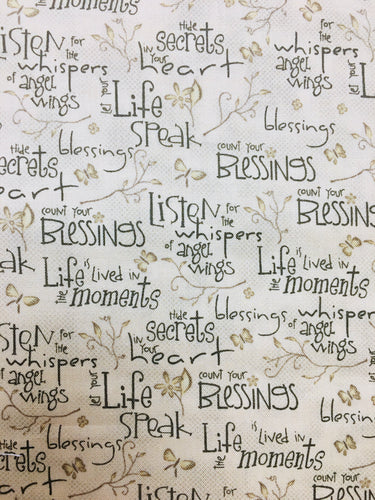 Hide
secrets
in your
heart
Listen for
the
whispers
of angel
wings
for
the
whispers
angel
wings
let your
Life
speak
let
L
blessings
blessings
Hide
secrets
heart
count your
BLESSINGS
count your
BLESSINGS
Listen for
the
whispers
of angel
wings
count your
BLESSINGS
speak
Life is lived in
the moments
Life is lived in
the moments
Hide
secrets
in your
heart
blessings
whispers
of angel
wings
Listen for
the
whispers
of angel
wings
let your
Life
speak
count your
BLESSINGS
blessings
blessings
Hide
secrets
heart
Life is lived in
the moments
count your
BLESSINGS
Listen for
count your
BLESSINGS